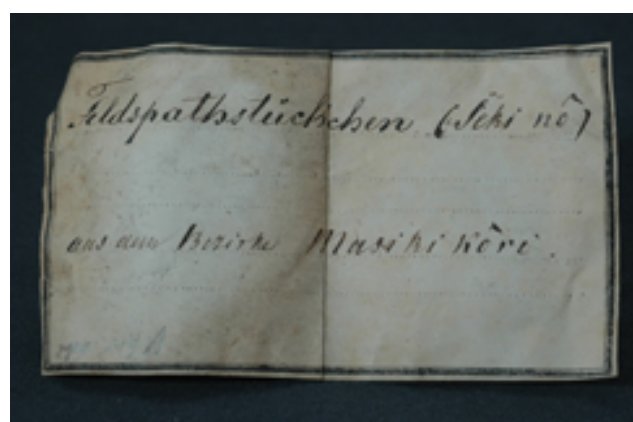 Feldspathstückchen (Sĕki nô)
aus dem Bezirke Masiki kôri.